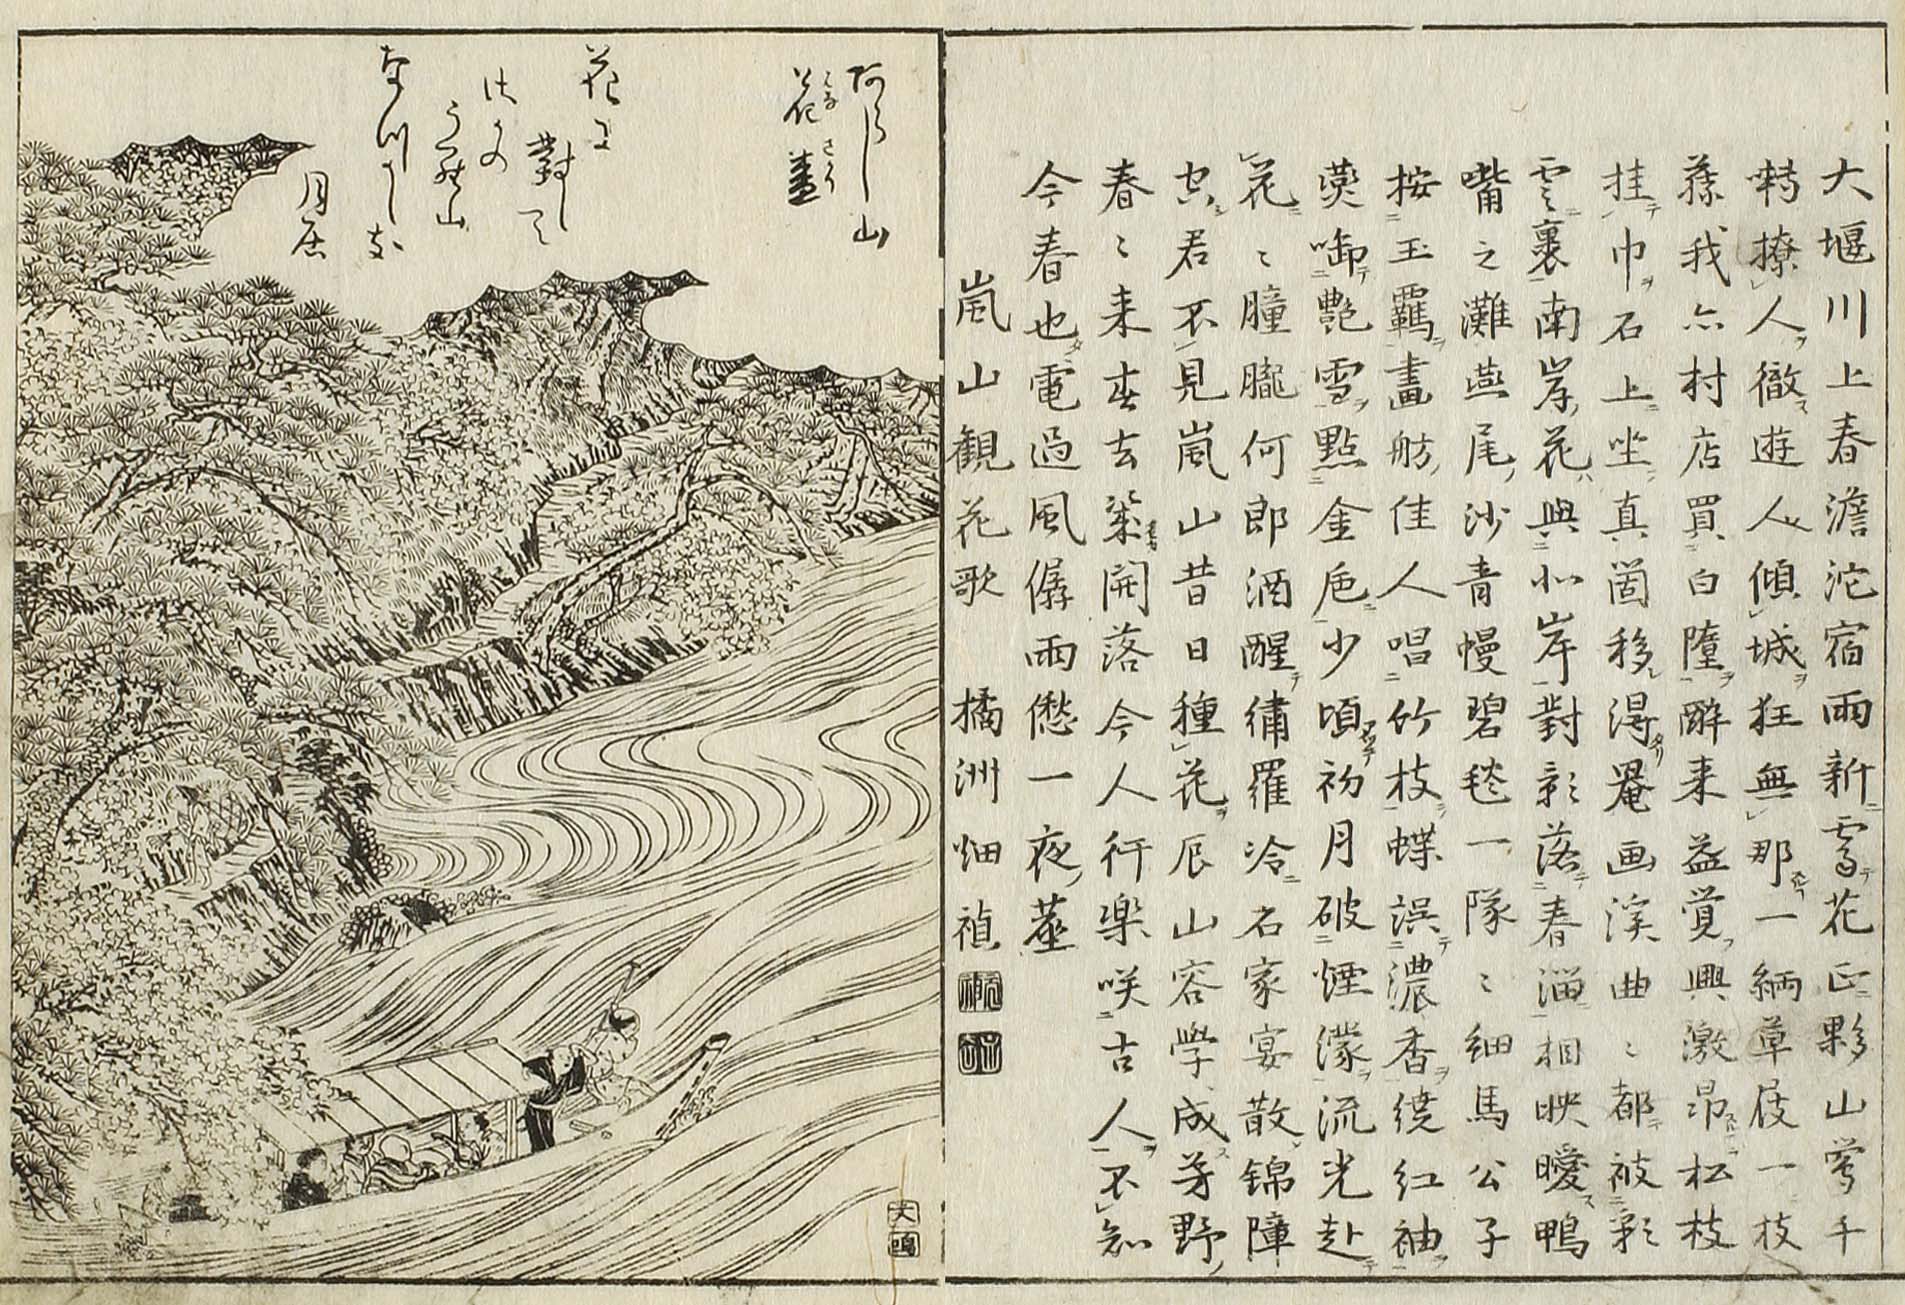 大堰川上春澹沱宿雨新霽花正夥山鶯千
囀撩人徹遊人傾城狂無那一緉草屐一枝
蓧我亦村店買白墮醉来益覚興激昂松枝
挂巾石上坐真箇移得罨画渓曲〻都被彩
雲裹南岸花與北岸對影落春淄相映曖鴨
嘴之灘燕尾沙青幔碧毯一隊〻細馬公子
按玉羈畫舫佳人唱竹枝蝶誤濃香繞紅袖
燕啣艶雪點金巵少頃初月破煙濛流光赴
花〻朣朧何郎酒醒繡羅冷石家宴散錦障
空君不見嵐山昔日種花辰山容学成芳野
春〻来春去幾開落今人行樂咲古人不知
今春也電過風僝雨僽一夜塵
嵐山観花歌 橘洲畑禎
あらし山
花盛
花に
對して
月居
文鳴